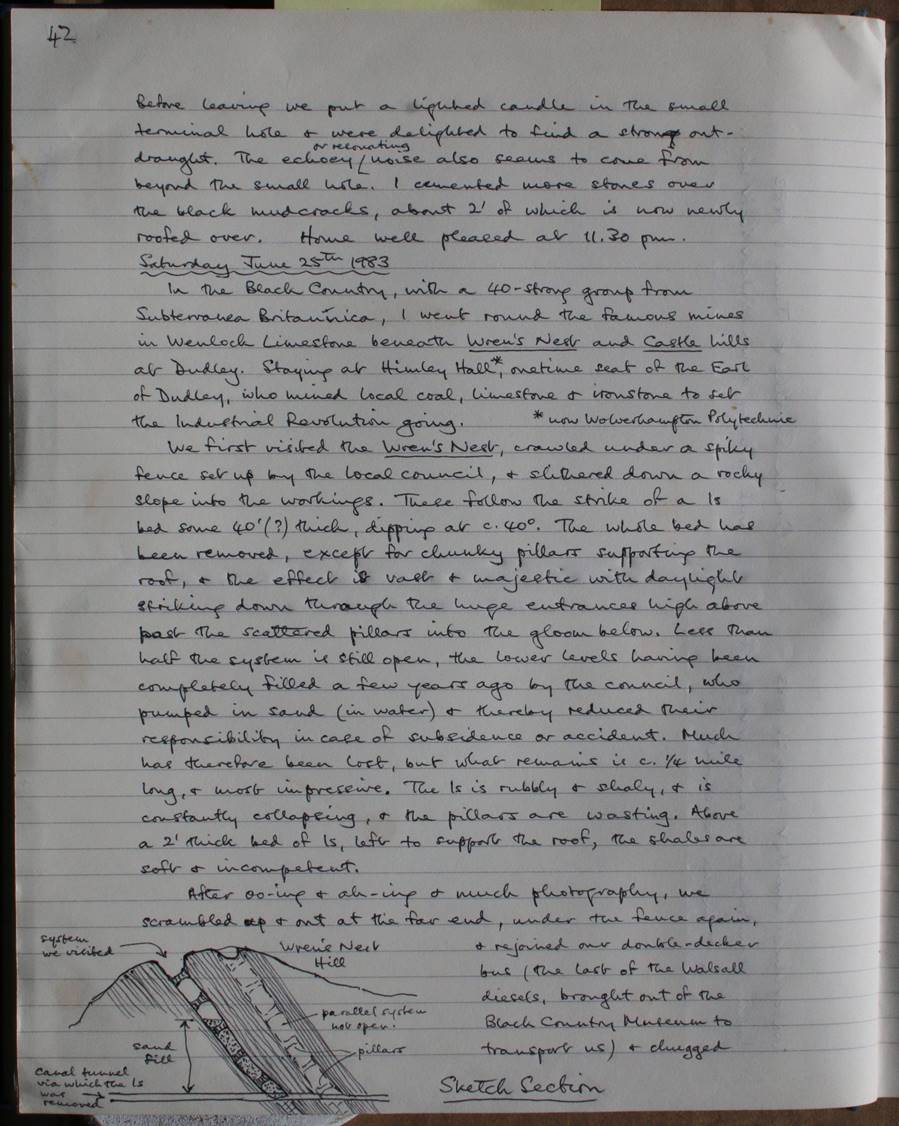 42
Before leaving we put a lighted candle in the small
terminal hole & were delighted to find a strong out-
or resonating
draught. The echoey noise also seems to come from
beyond the small hole. I cemented more stones over
the black mudcracks, about 2' of which is now newly
roofed over. Home well pleased at 11.30 pm.
Saturday June 25th 1983
In the Black Country, with a 40-strong group from
Subterranea Britannica, I went round the famous mines
in Wenlock Limestone beneath Wren's Nest and Castle hills
at Dudley. Staying at Himley Hall*, onetime seat of the Earl
of Dudley, who mined local coal, limestone & ironstone to set
the Industrial Revolution going. * now Wolverhampton Polytechnic
We first visited the Wren's Nest, crawled under a spiky
fence set up by the local council, & slithered down a rocky
slope into the workings. These follow the strike of a ls
bed some 40'(?) thick, dipping at c. 40°. The whole bed has
been removed, except for chunky pillars supporting the
roof, & the effect is vast & majestic with daylight
striking down through the huge entrances high above
past the scattered pillars into the gloom below. Less than
half the system is still open, the lower levels having been
completely filled a few years ago by the council, who
pumped in sand (in water) & thereby reduced their
responsibility in case of subsidence or accident. Much
has therefore been lost, but what remains is c. 1/4 mile
long, & most impressive. The ls is rubbly & shaly, & is
constantly collapsing, & the pillars are wasting. Above
a 2' thick bed of ls, left to support the roof, the shales are
soft & incompetent.
After oo-ing & ah-ing & much photography, we
scrambled up & out at the far end, under the fence again,
& rejoined our double-decker
bus (the last of the Walsall
diesels, brought out of the
Black Country Museum to
transport us) & chugged
system
we visited
Wren's Nest
Hill
parallel system
not open.
pillars
sand
fill
Canal tunnel
via which the ls
was
removed
Sketch Section